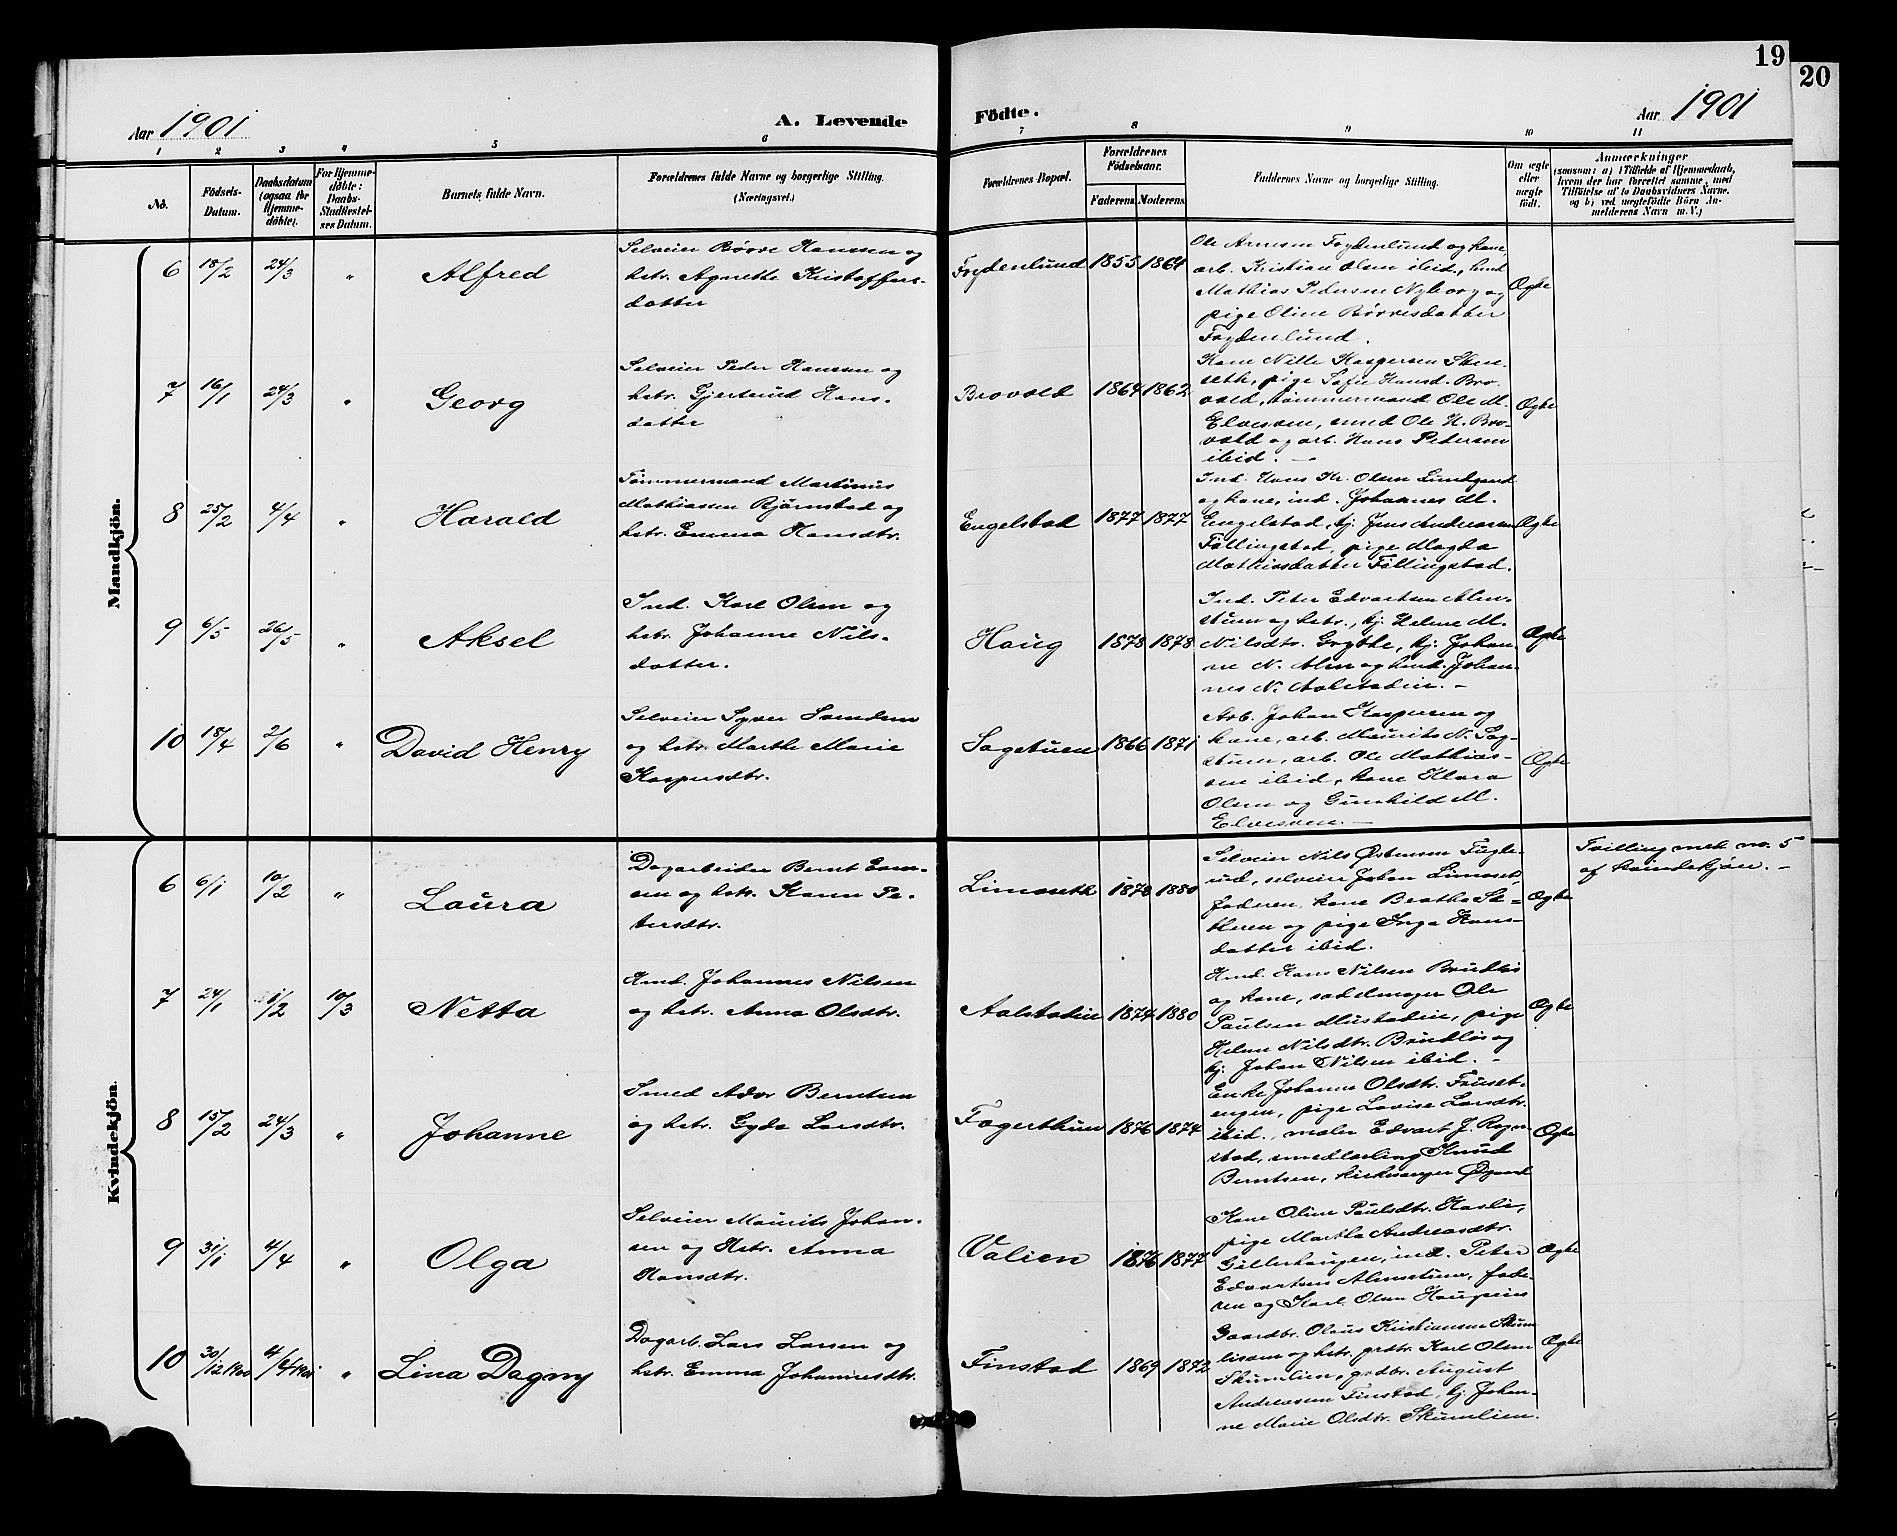 19
20
Aar 1901
A. Levende
Fødte.
Aar 1901
1 2 3 4 5 6 7 8 9 10 11
No.
Födsels-Datum.
Daabsdatum (ogsaa for Hjemme-døbte).
For Hjemme-døbte: Daabs-Stadfæstel-ses Datum.
Barnets fulde Navn.
Forældrenes fulde Navne og borgerlige Stilling.
(Næringsvei.)
Forældrenes Bopæl.
Forældrenes Födselsaar.
Faderens. Moderens.
Faddernes Navne og borgerlige Stilling.
Om ægte eller uægte födt.
Anmærkninger
(saasom: a) i Tilfælde af Hjemmedaab,
hvem der har forrettet samme, med
Tilføielse af to Daabsvidners Navne.
og b) ved uægtefödte Börn An-
melderens Navn m. V.)
Mandkjön.
6 18/2 24/3 " Alfred
Selveier Børre Hansen og
hstr. Agnethe Kristoffers-
datter
Frydenlund 1855 1864
Ole Arnesen Frydenlund og kone,
arb. Kristian Olsen ibid.,
Mathias Pedersen Nyborg og
pige Oline Børresdatter
Frydenlund.
Ægte
7 16/1 24/3 " Georg
Selveier Peder Hansen og
hstr. Gjertrud Hans-
datter
Brovold 1864 1862
Kone Nille Kaspersen Sten-
seth, pige Sofie Hansd. Bro-
vold, tømmermand Ole M.
Elvesven, smed Ole H. Bro-
vold og arb. Hans Pedersen
ibid. —
Ægte
8 25/2 4/4 " Harald
Tømmermand Martinus
Mathiassen Bjørnstad og
hstr. Emma Hansdtr.
Engelstad 1877 1877
Ind. Hans Kr. Olsen Lundgaard
og kone, ind. Johannes M.
Engelstad, tj. Jens Andreassen
Føllingstad, pige Magda
Mathiasdatter Føllingstad.
Ægte
9 6/5 26/5 " Aksel
Ind. Karl Olsen og
hstr. Johanne Nils-
datter.
Haug 1878 1878
Ind. Peter Edvartsen Alm-
stuen og hstr., tj. Helene M.
Nilsdtr. Grythe, tj. Johan-
ne N. Alm og hmd. Johan-
nes N. Aalstadie. —
Ægte
10 18/4 2/6 " David Henry
Selveier Syver Svendsen
og hstr. Marthe Marie
Kaspersdtr.
Sagstuen 1866 1871
Arb. Johan Kaspersen og
kone, arb. Maurits N. Sag-
stuen, arb. Ole Mathias-
sen ibid, kone Klara
Olsen og Gunhild M.
Elvesven. —
Ægte
Kvindekjön.
6 6/1 10/2 " Laura
Dagarbeider Bernt
sen og hstr. Karen Pe-
tersdtr.
Limseth 1878 1880
Selveier Nils Østensen Fugle-
rud, selveier Johan Limset,
faderen, kone Beathe
og pige Inga Hans-
datter ibid.
Ægte
Tvilling med no. 5
af kvindekjøn. —
7 24/1 1/2 10/3 Netta
Hmd. Johannes Nilsen
og hstr. Anna Olsdtr.
Aalstadie 1874 1880
Hmd. Hans Nilsen Brudlis
og kone, sadelmager Ole
Paulsen Mustadie, pige
Helene Nilsdtr. Brudlis og
tj. Johan Nilsen ibid. —
Ægte
8 15/2 24/3 " Johanne
Smed Ador Berntsen
og hstr. Gyda Larsdtr.
Fagerthun 1876 1874
Enke Johanne Olsdtr. Fruset-
engen, pige Lovise Larsdtr.
ibid., maler Edvart J. Rogn-
stad, smedlærling Knud
Berntsen, kirkesanger Øygard
Ægte
9 31/1 4/4 " Olga
Selveier Maurits Johan-
sen og Hstr. Anna
Hansdtr.
Valien 1876 1877
Kone Oline Paulsdtr. Hasli,
pige Martha Andreasdtr.
Gillerhaugen, ind. Peter
Edvartsen Almstuen, fade-
ren og Karl Olsen
Ægte
10 30/12 1900 4/4 1901 " Lina Dagny
Dagarb. Lars Larsen og
hstr. Emma Johannesdtr.
Finstad 1869 1872
Gaardbr. Olaus Kristiansen Skum-
lien og hstr. grdbr. Karl Olsen
Skumlien, grdbr. August
Andreassen Finstad, tj. Johan-
ne Marie Olsdtr. Skumlien.
Ægte